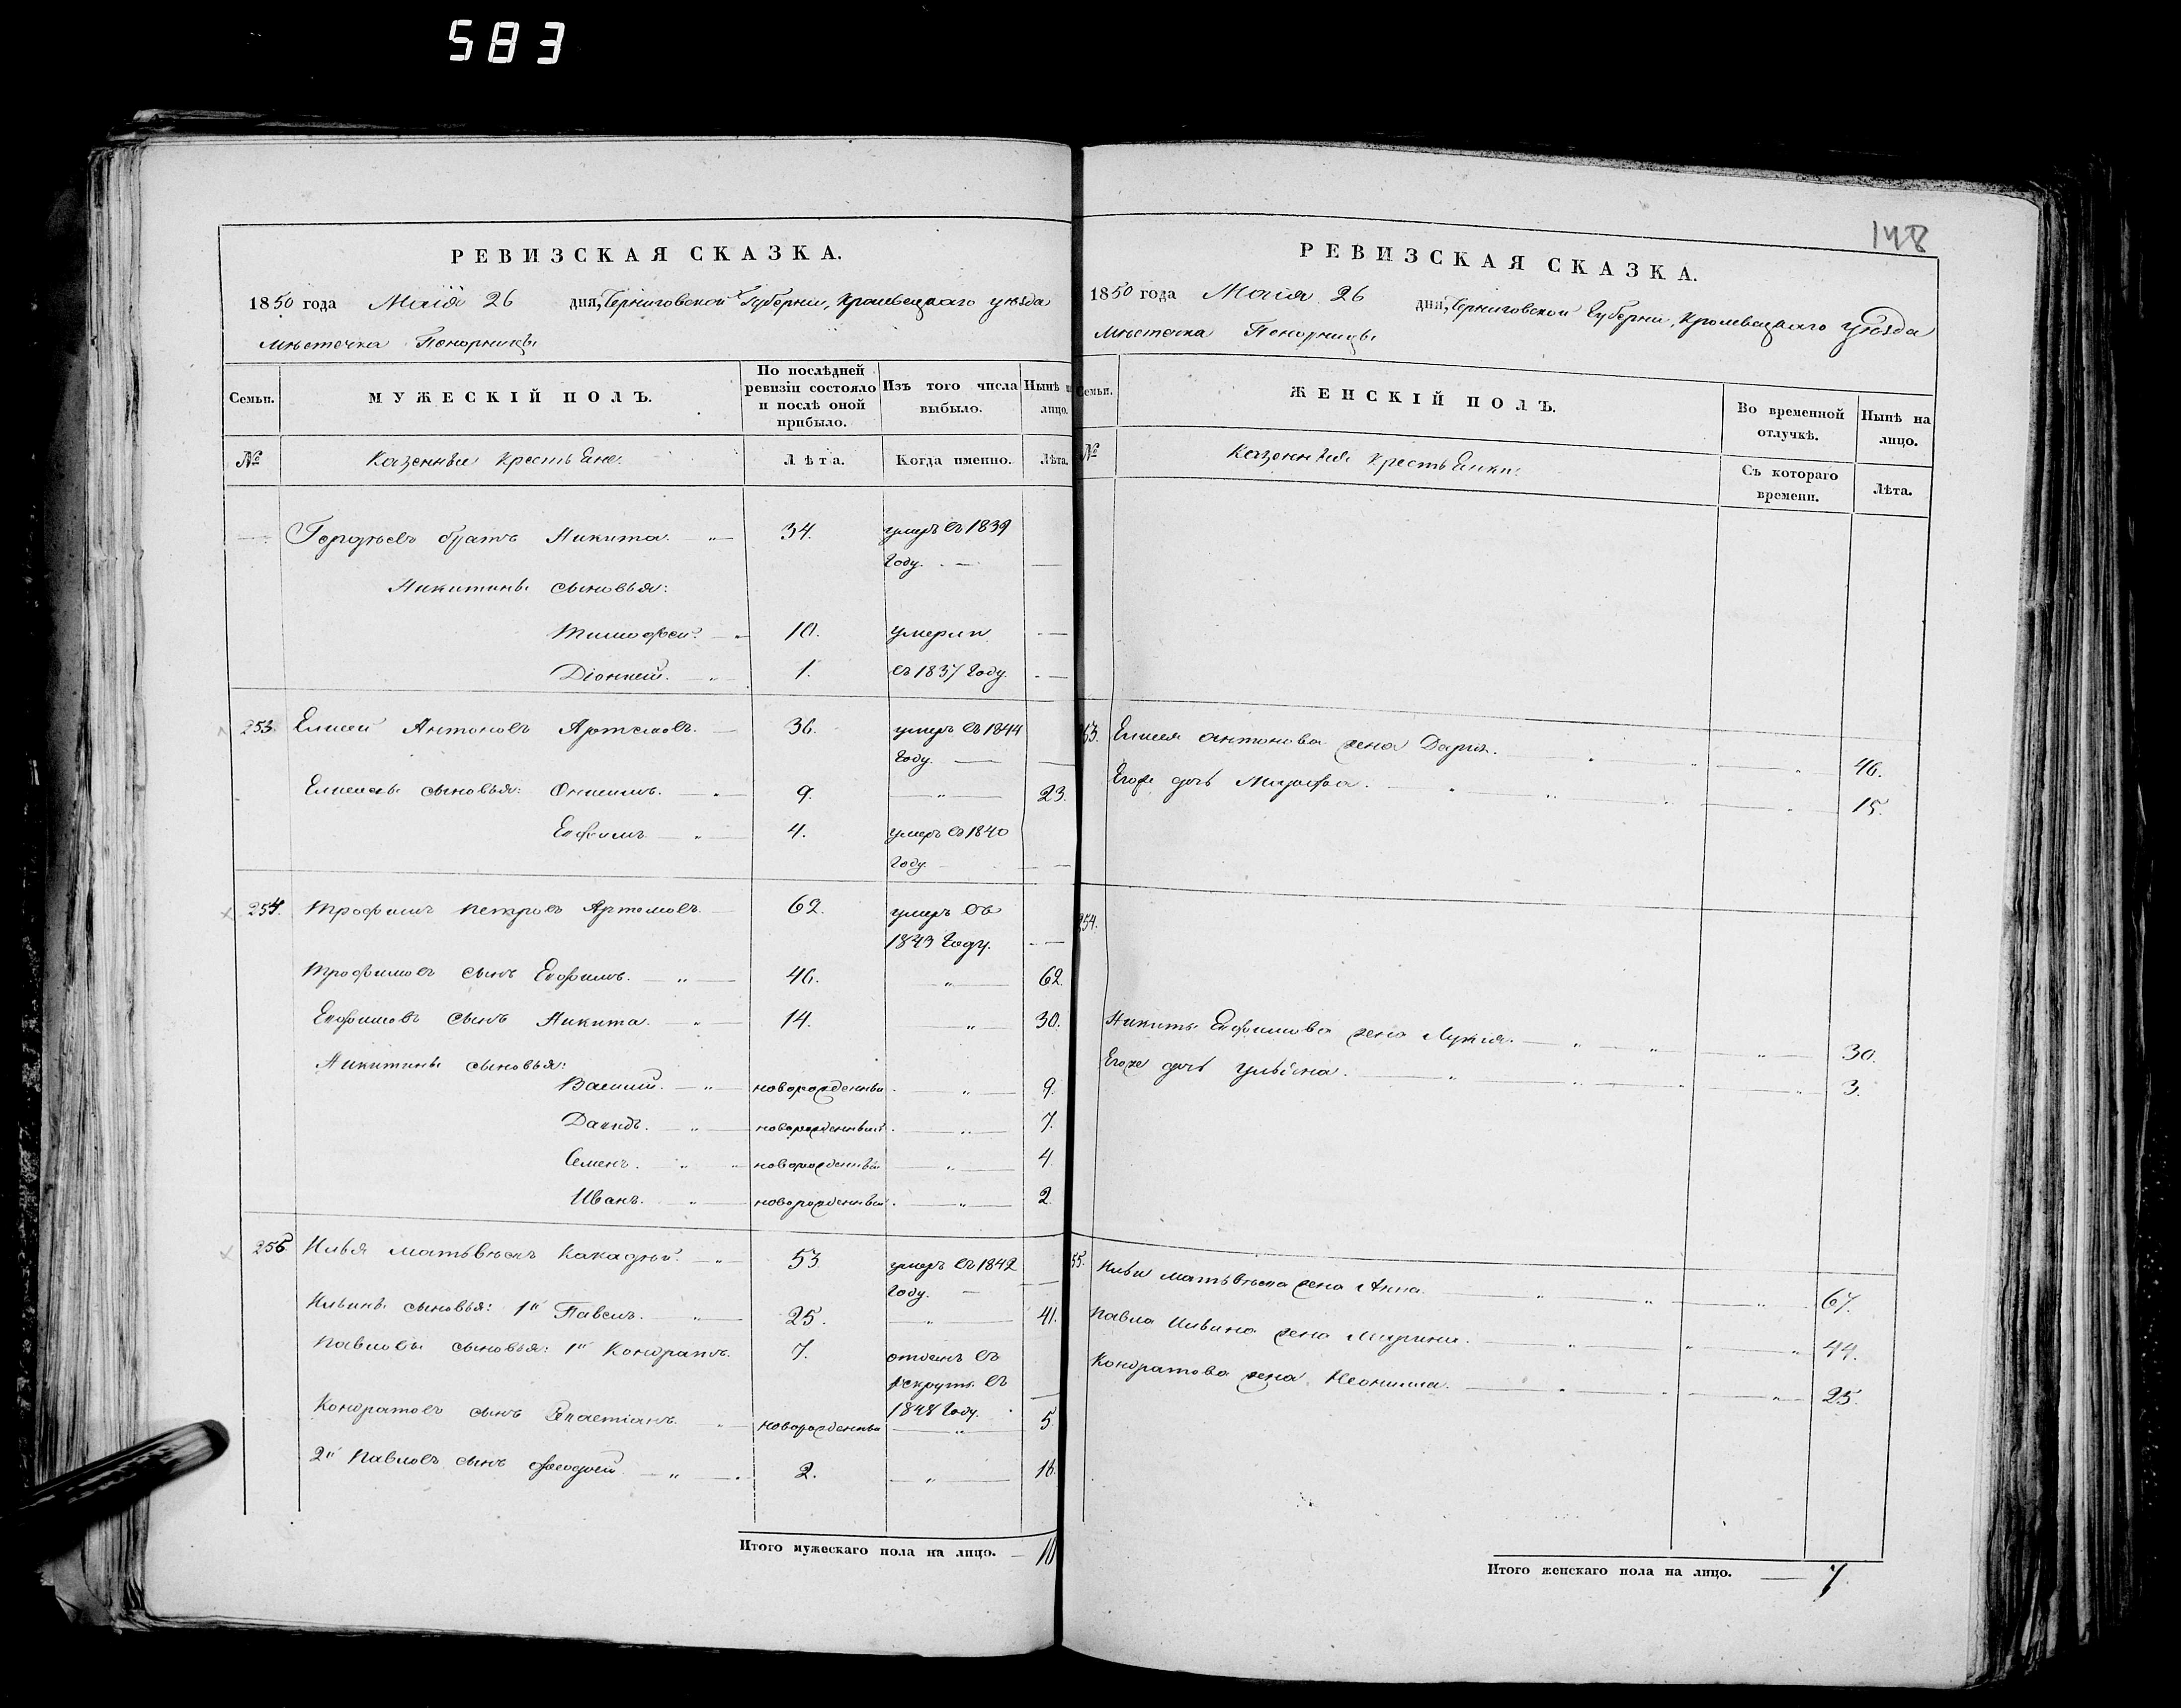 583
148
РЕВИЗСКАЯ СКАЗКА.
1850 года Маія 26 дня, Черниговской Губерніи, Кролевецкаго уѣзда
Мѣстечка Понорницы
Семьи.
МУЖЕСКІЙ ПОЛЪ.
По послѣдней ревизіи состояло и послѣ оной прибыло.
Изъ того числа выбыло.
Нынѣ на лицо.
№
Казенные крестьяне.
Лѣта.
Когда именно.
Лѣта.
братъ Никита. 34. умеръ въ 1839
Году.
Никитины сыновья:
Тимофей. 10. умерли
Діонисій. 1. въ 1837 Году.
253. Елисей Антоновъ Артемовъ. 36. умеръ въ 1844
Году.
Елисеевы сыновья: Онисимъ. 9. 23.
Ефимъ 4. умеръ въ 1840
Году.
254. Трофимъ Петровъ Артемовъ. 62. умеръ въ
1843 Году.
Трофимовъ сынъ Ефимъ. 46. 62.
Ефимовъ сынъ Никита. 14. 30.
Никитины сыновья:
Василій. новорожденный 9.
Давидъ. новорожденный 7.
Семенъ. новорожденный 4.
Иванъ. новорожденный 2.
255. Илья Матвѣевъ 53. умеръ въ 1842
Году.
Ильины сыновья: 1й Павелъ. 25. 41.
Павловы сыновья: 1й Кондратъ. 7. отданъ въ
рекруты въ
1848 Году.
Кондратовъ сынъ новорожденный 5.
2й Павловъ сынъ 2. 18.
Итого мужескаго пола на лицо. 10
РЕВИЗСКАЯ СКАЗКА.
1850 года Маія 26 дня, Черниговской Губерніи, Кролевецкаго уѣзда
Мѣстечка Понорницы
Семьи.
ЖЕНСКІЙ ПОЛЪ.
Во временной отлучкѣ.
Нынѣ на лицо.
№
Казенныя крестьянки.
Съ котораго времени.
Лѣта.
253. Елисея Антонова жена Дарья. 46.
Егожъ дочь Марфа. 15.
254.
Никиты Ефимова жена Лукія. 30.
Егоже дочь Ульяна. 3.
55. Ильи Матвѣева жена Анна. 67.
Павла Ильина жена Марина. 44.
Кондратова жена Неонила. 25.
Итого женскаго пола на лицо. 7